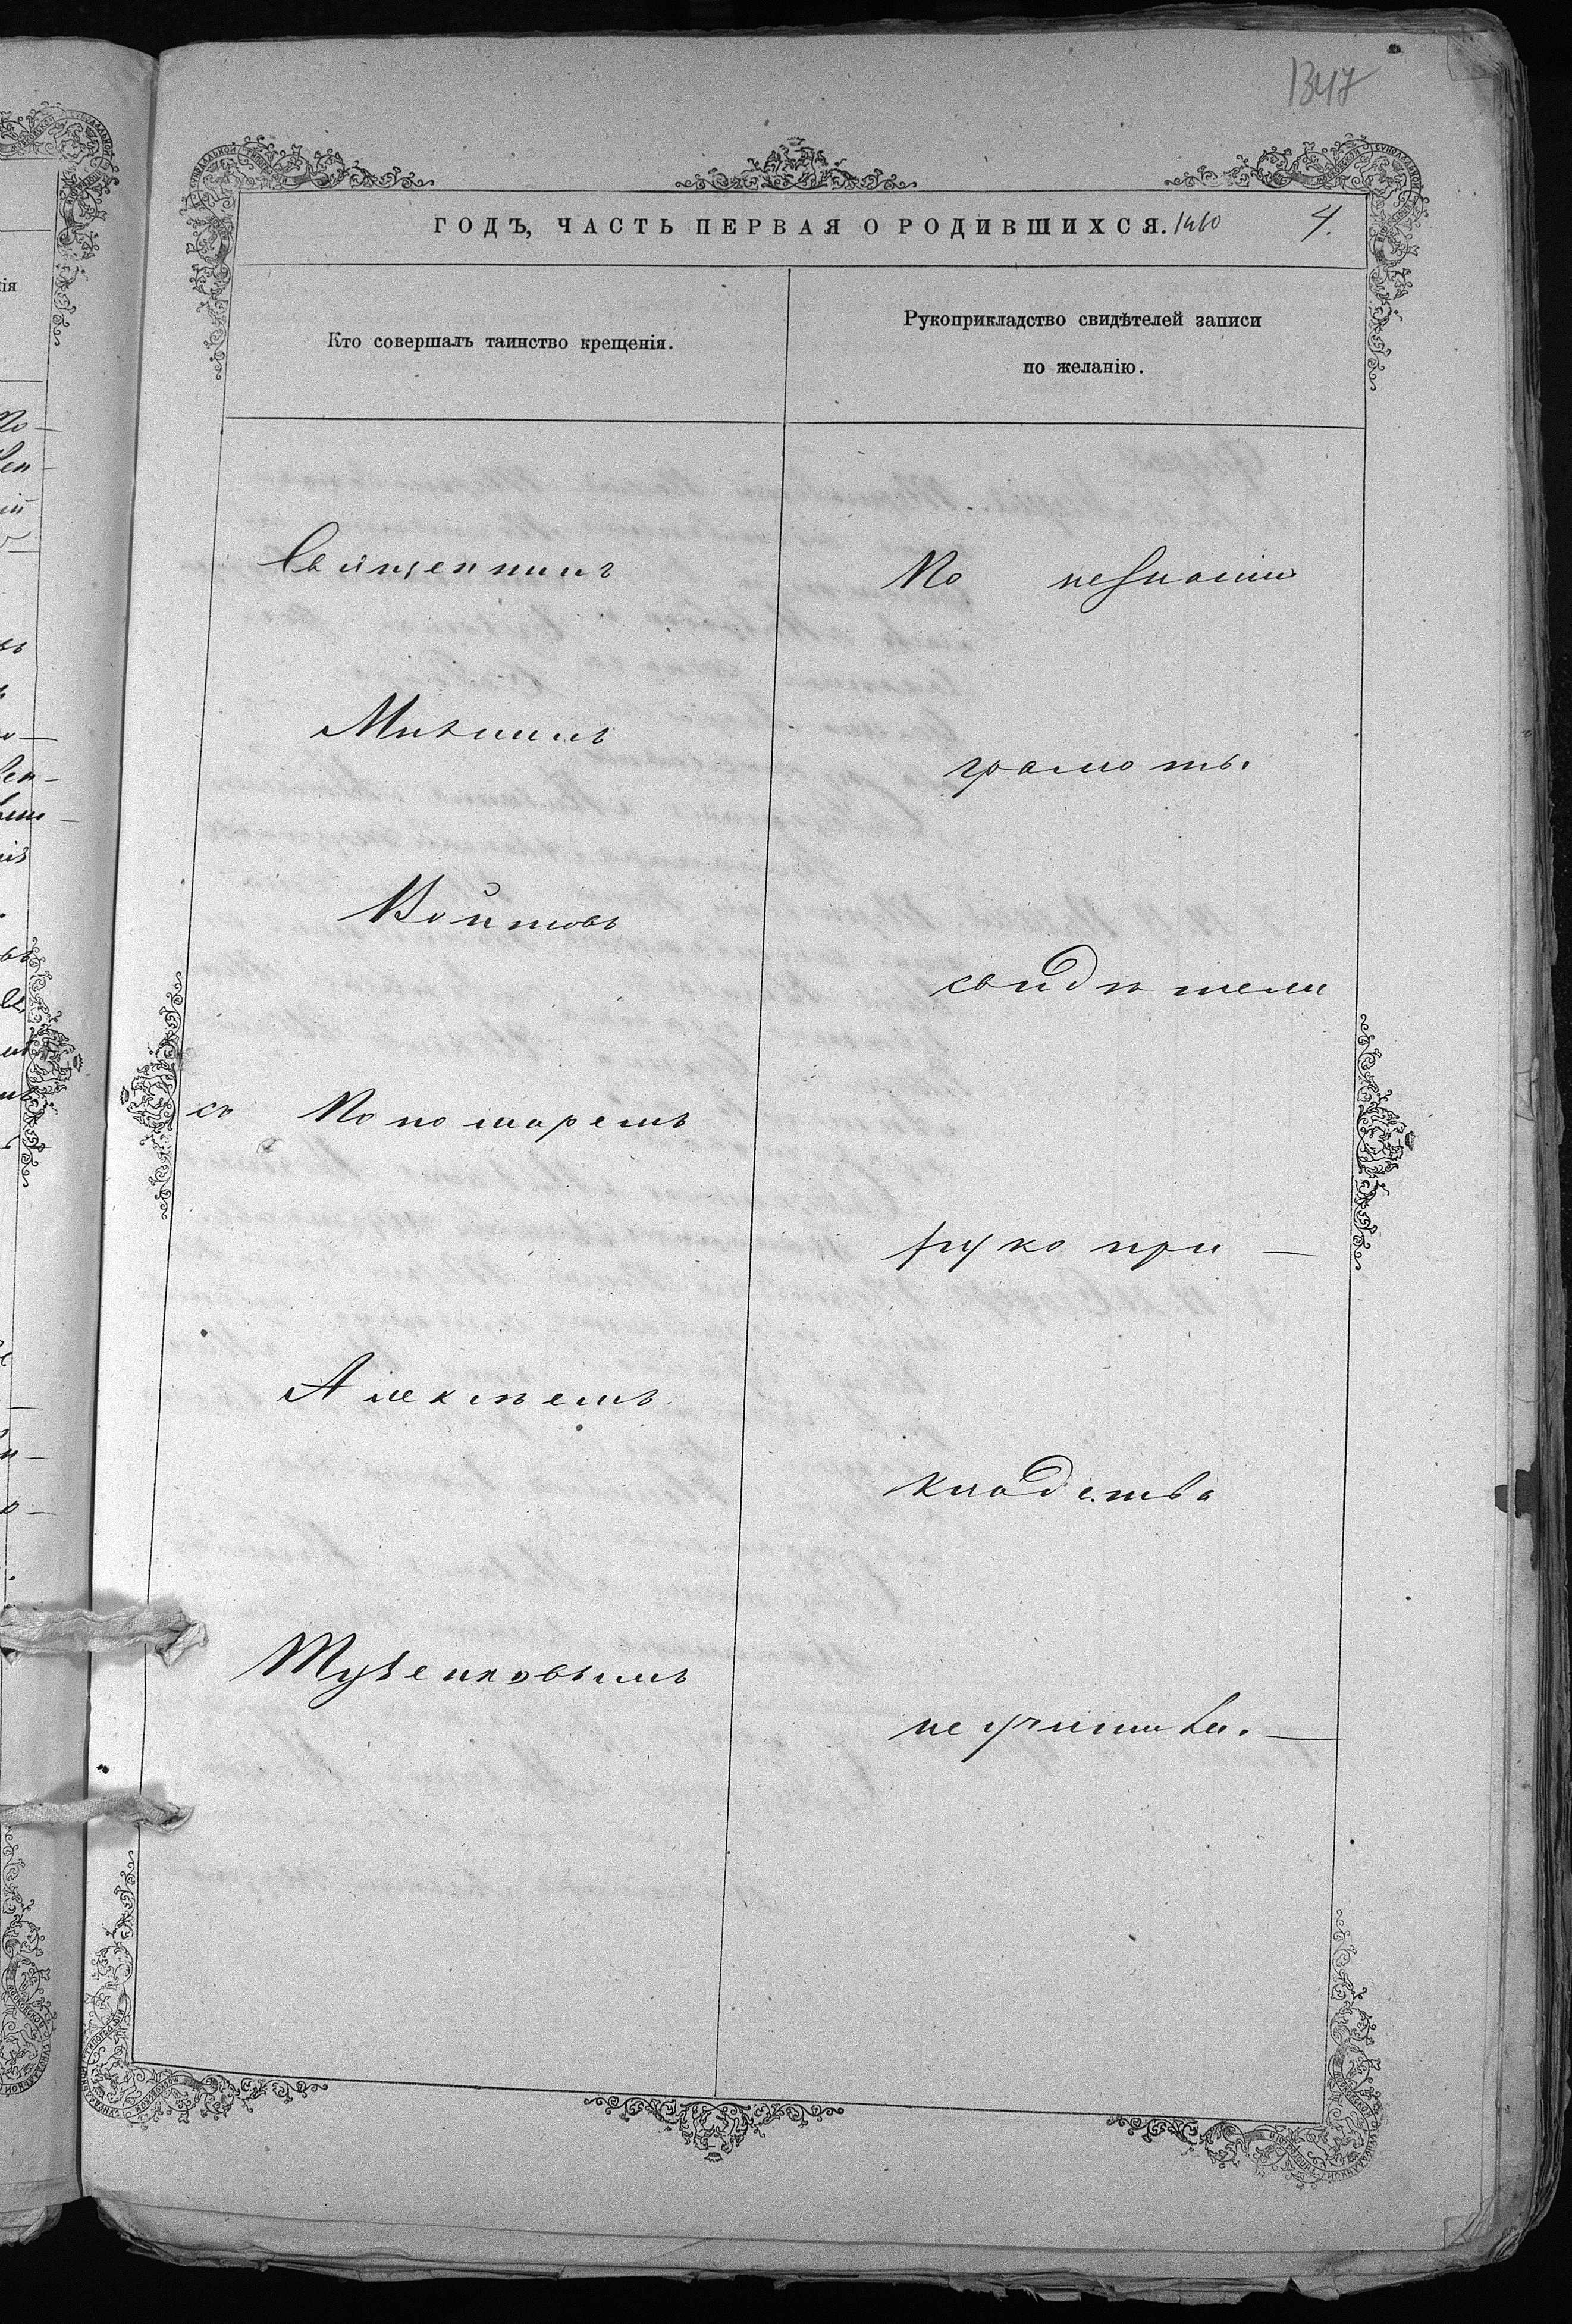 1347
ГОДЪ, ЧАСТЬ ПЕРВАЯ О РОДИВШИХСЯ. 4.
Кто совершалъ таинство крещенія.
Рукоприкладство свидѣтелей записи
по желанію.
Священникъ
Михаилъ
Войтовъ
съ Пономаремъ
Алексѣемъ
По незнанію
грамоты
свидѣтели
рукопри—
кладства
не учинили.—